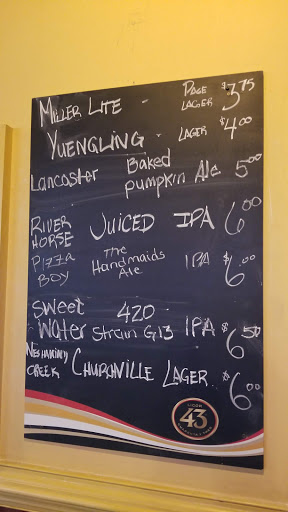 MILLER LITE - PALE LAGER $3.75
YUENGLING - LAGER $4.00
Lancaster Baked Pumpkin Ale 5.00
RIVER HORSE JUICED IPA 6.00
PIZZA BOY The Handmaids Ale IPA $6.00
Sweet Water 420 Strain G13 IPA $6.50
NESHAMINY CREEK CHURCHVILLE LAGER $6.00
LICOR
43